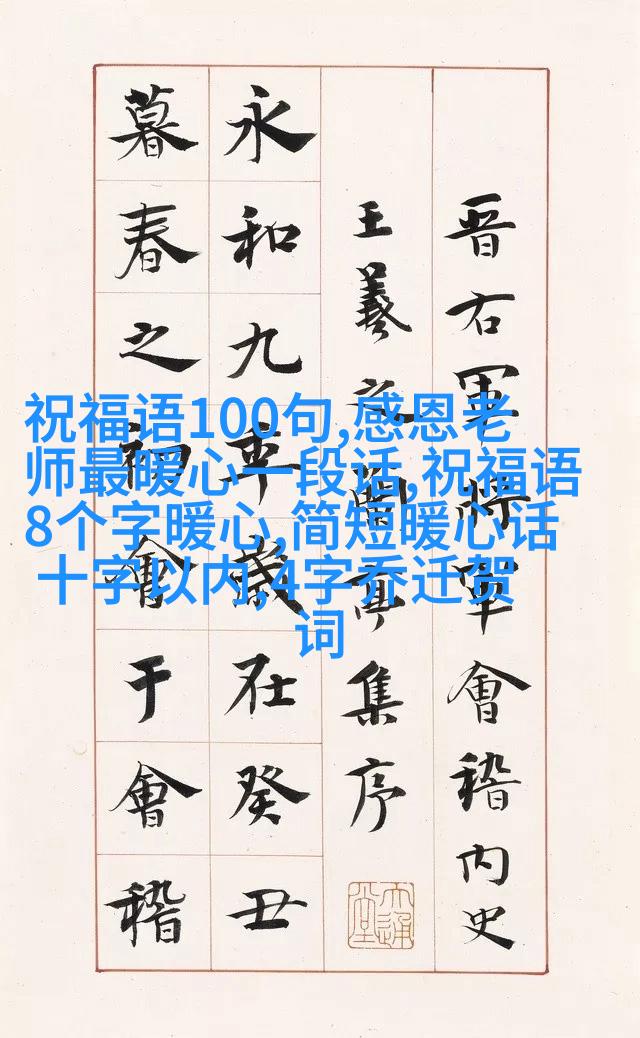 晋右軍將軍會稽内史
王羲之蘭亭集序
永和九年歲在癸丑
暮春之初會于會稽
祝福语100句,感恩老
师最暖心一段话,祝福语
8个字暖心,简短暖心话
十字以内,4字乔迁贺
词